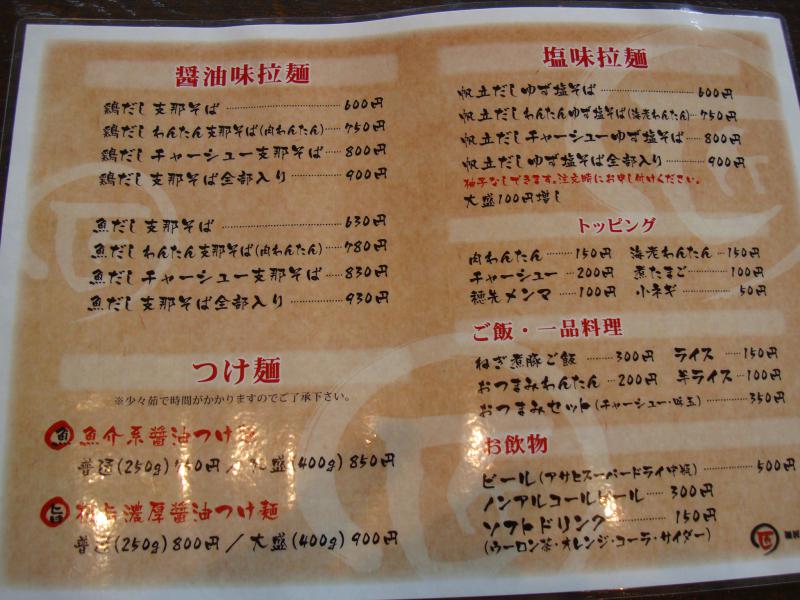 醤油味拉麺
鶏だし支那そば 600円
鶏だし わんたん支那そば(肉わんたん) 750円
鶏だし チャーシュー支那そば 800円
鶏だし 支那そば全部入り 900円
魚だし 支那そば 630円
魚だし わんたん支那そば(肉わんたん) 780円
魚だし チャーシュー支那そば 830円
魚だし 支那そば全部入り 930円
つけ麺
※少々茹で時間がかかりますのでご了承下さい。
魚 魚介系醤油つけ
普通(250g) 750円 / 大盛(400g) 850円
旨 濃厚醤油つけ麺
普通(250g) 800円 / 大盛(400g) 900円
塩味拉麺
帆立だしゆず塩そば 600円
帆立だし わんたんゆず塩そば(海老わんたん) 750円
帆立だし チャーシューゆず塩そば 800円
帆立だし ゆず塩そば全部入り 900円
柚子なしできます。注文時にお申し付けください。
大盛100円増し
トッピング
肉わんたん 150円 海老わんたん 150円
チャーシュー 200円 煮たまご 100円
穂先メンマ 100円 小ネギ 50円
ご飯・一品料理
ねぎ煮豚ご飯 300円 ライス 150円
おつまみわんたん 200円 半ライス 100円
おつまみセット(チャーシュー・味玉) 350円
お飲物
ビール(アサヒスーパードライ中瓶) 500円
ノンアルコールビール 300円
ソフトドリンク 150円
(ウーロン茶・オレンジ・コーラ・サイダー)